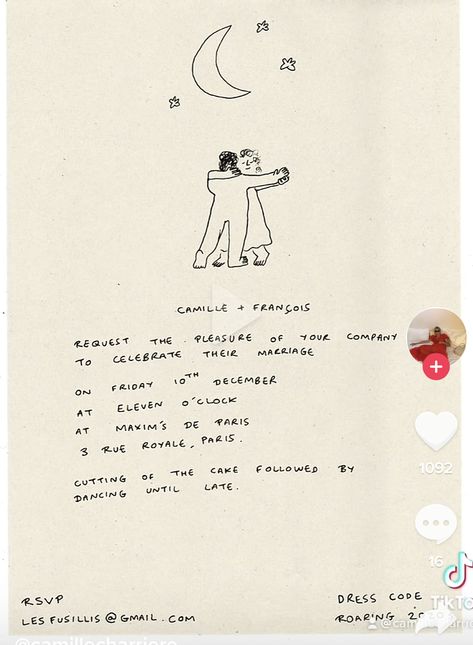 CAMILLE + FRANÇOIS
REQUEST THE PLEASURE OF YOUR COMPANY
TO CELEBRATE THEIR MARRIAGE
ON FRIDAY 10TH DECEMBER
AT ELEVEN O'CLOCK
AT MAXIM'S DE PARIS
3 RUE ROYALE, PARIS.
CUTTING OF THE CAKE FOLLOWED BY
DANCING UNTIL LATE.
1092
16
RSVP
LESFUSILLIS@GMAIL.COM
DRESS CODE
ROARING
TikTo
@camillecharriere